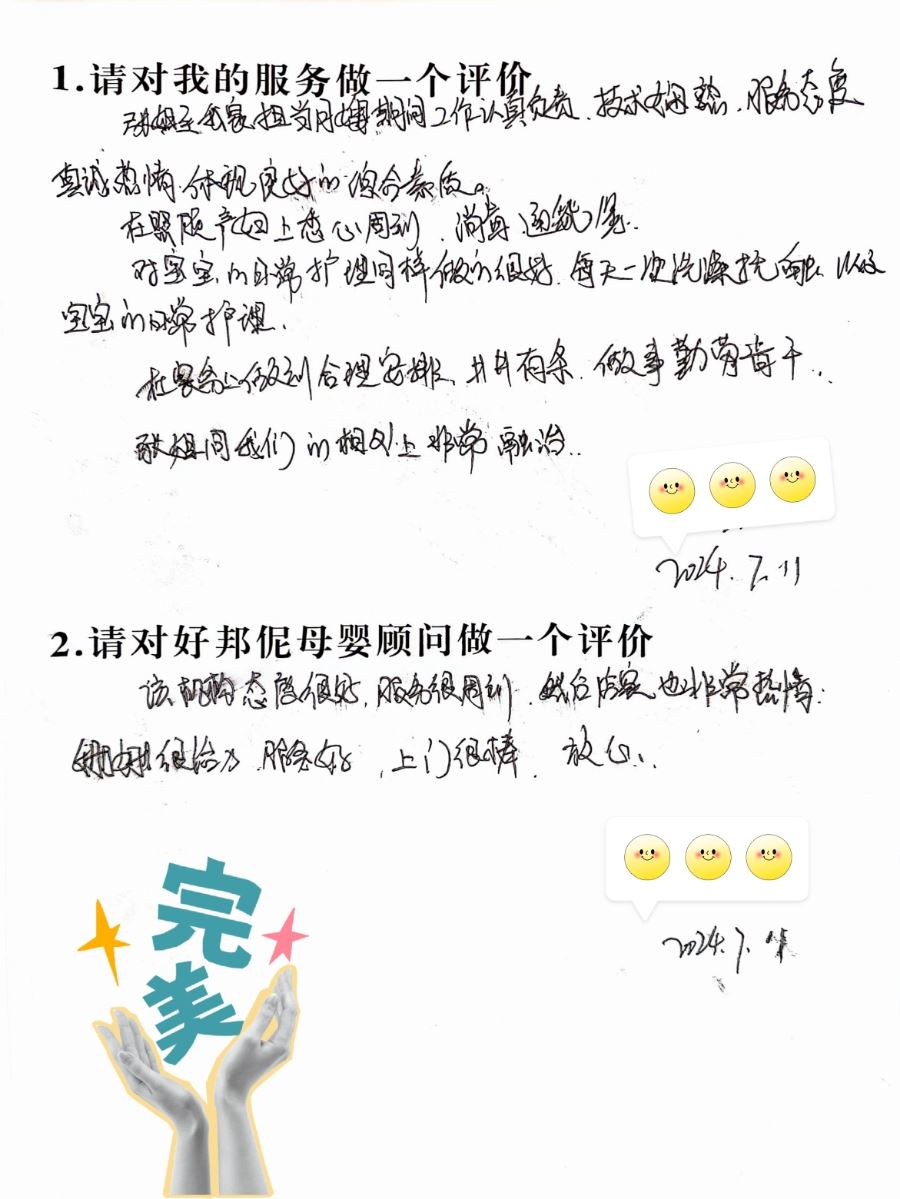 1.请对我的服务做一个评价
姐在我家担当月嫂期间工作认真负责、技术娴熟、服务态度
真诚热情、体现良好的综合素质。
在照顾产妇上悉心周到、
对宝宝的日常护理同样做的很好、每天一次洗澡抚触、以及
宝宝的日常护理、
在家务上做到合理安排、井井有条、做事勤劳肯干、
姐同我们的相处上非常融洽、
2024.7.11
2.请对好邦伲母婴顾问做一个评价
该机构态度很好,服务很周到、也非常热情:
很给力 服务好、上门很棒、放心、
2024.7.11
完
美